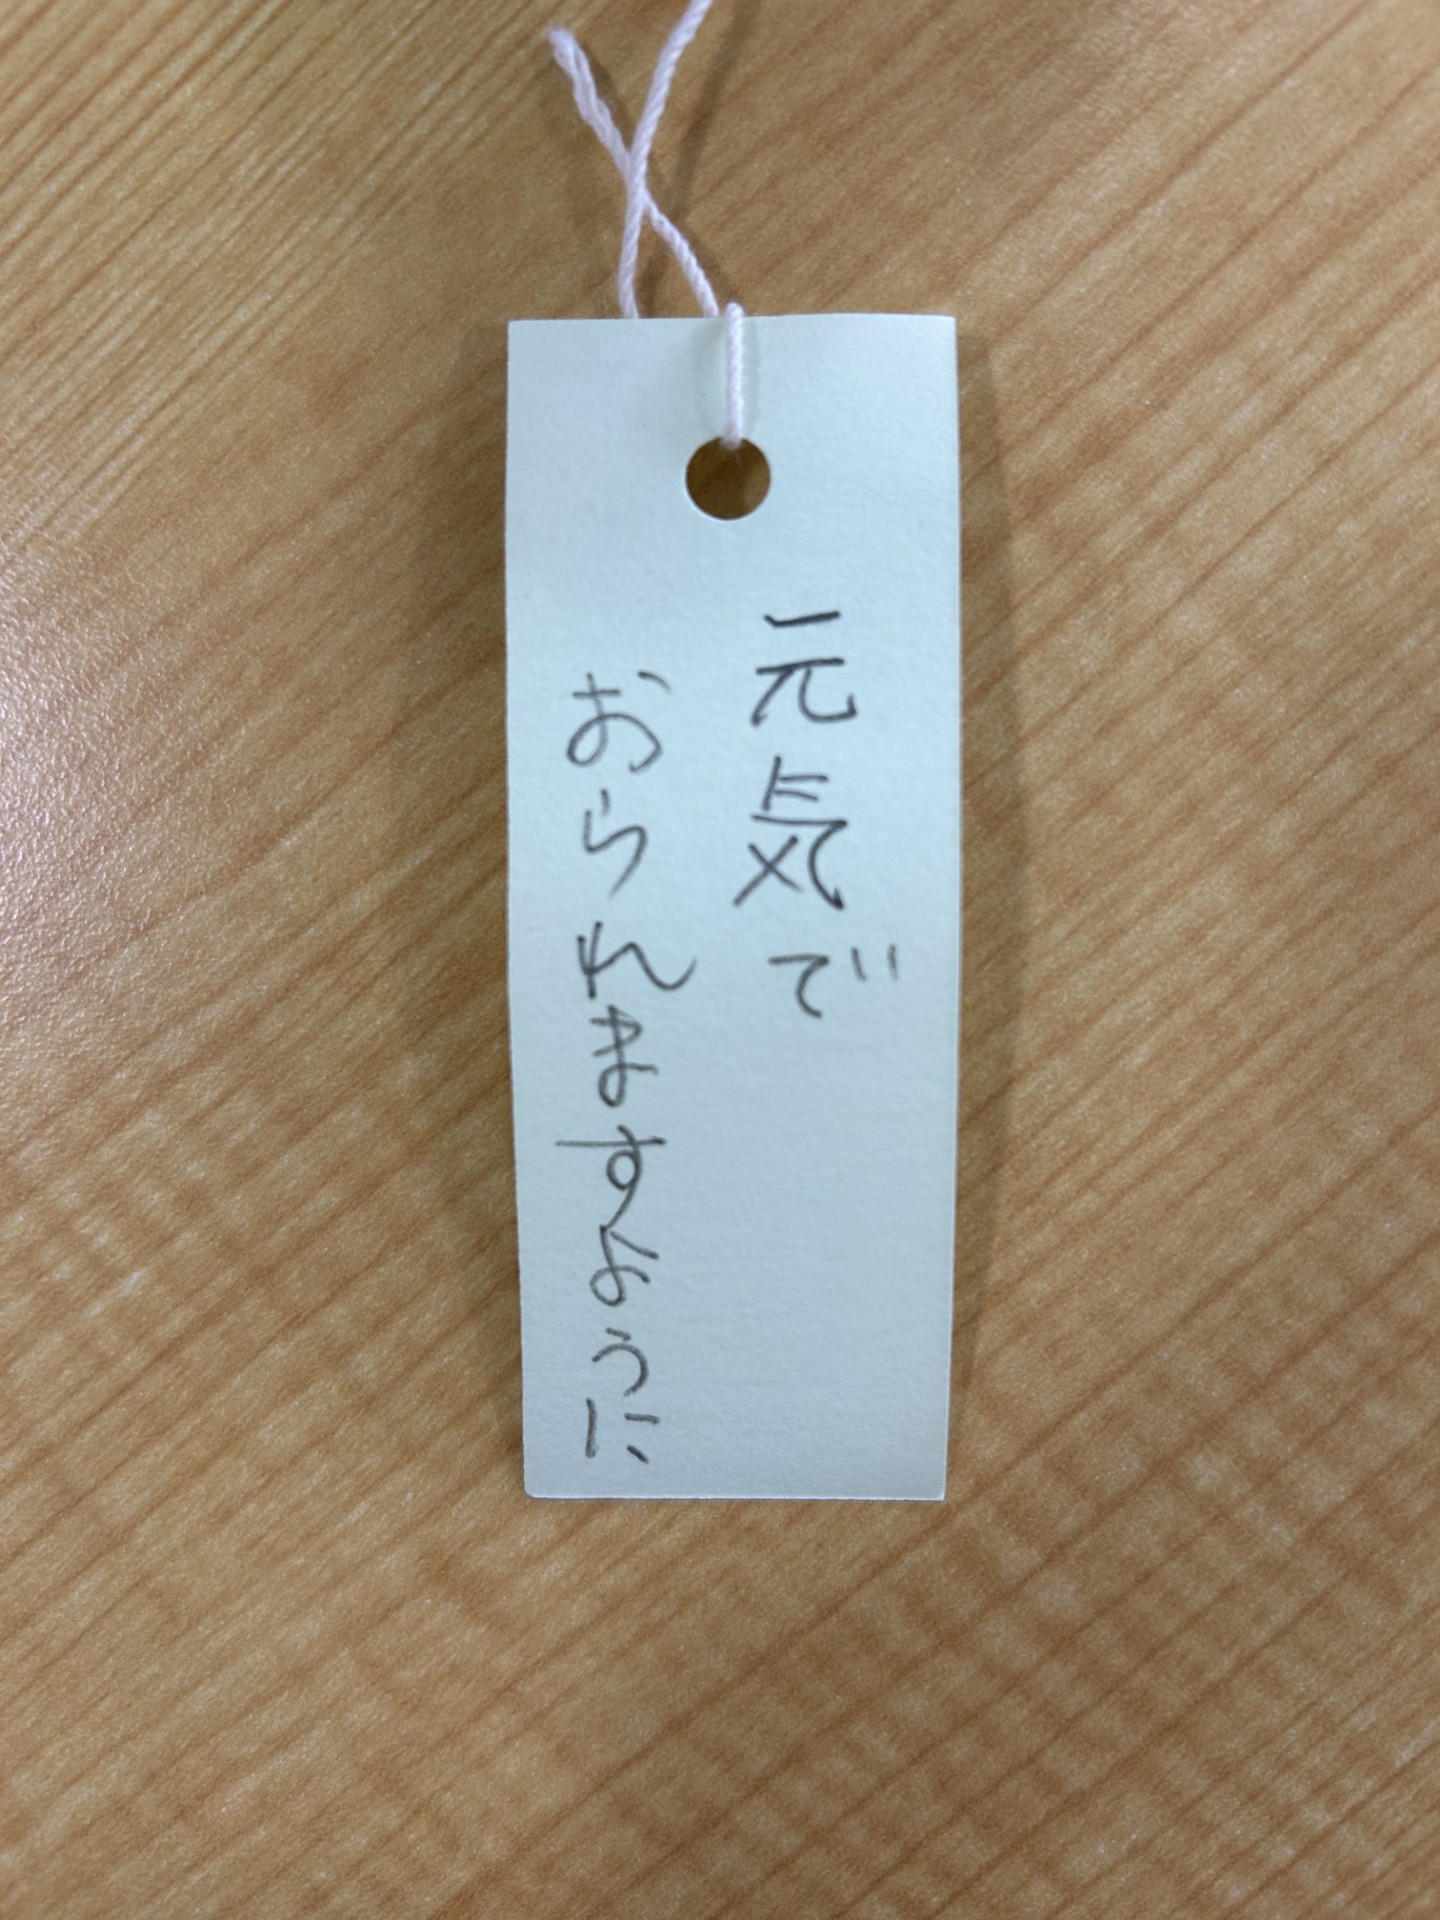 元気で
おられますように